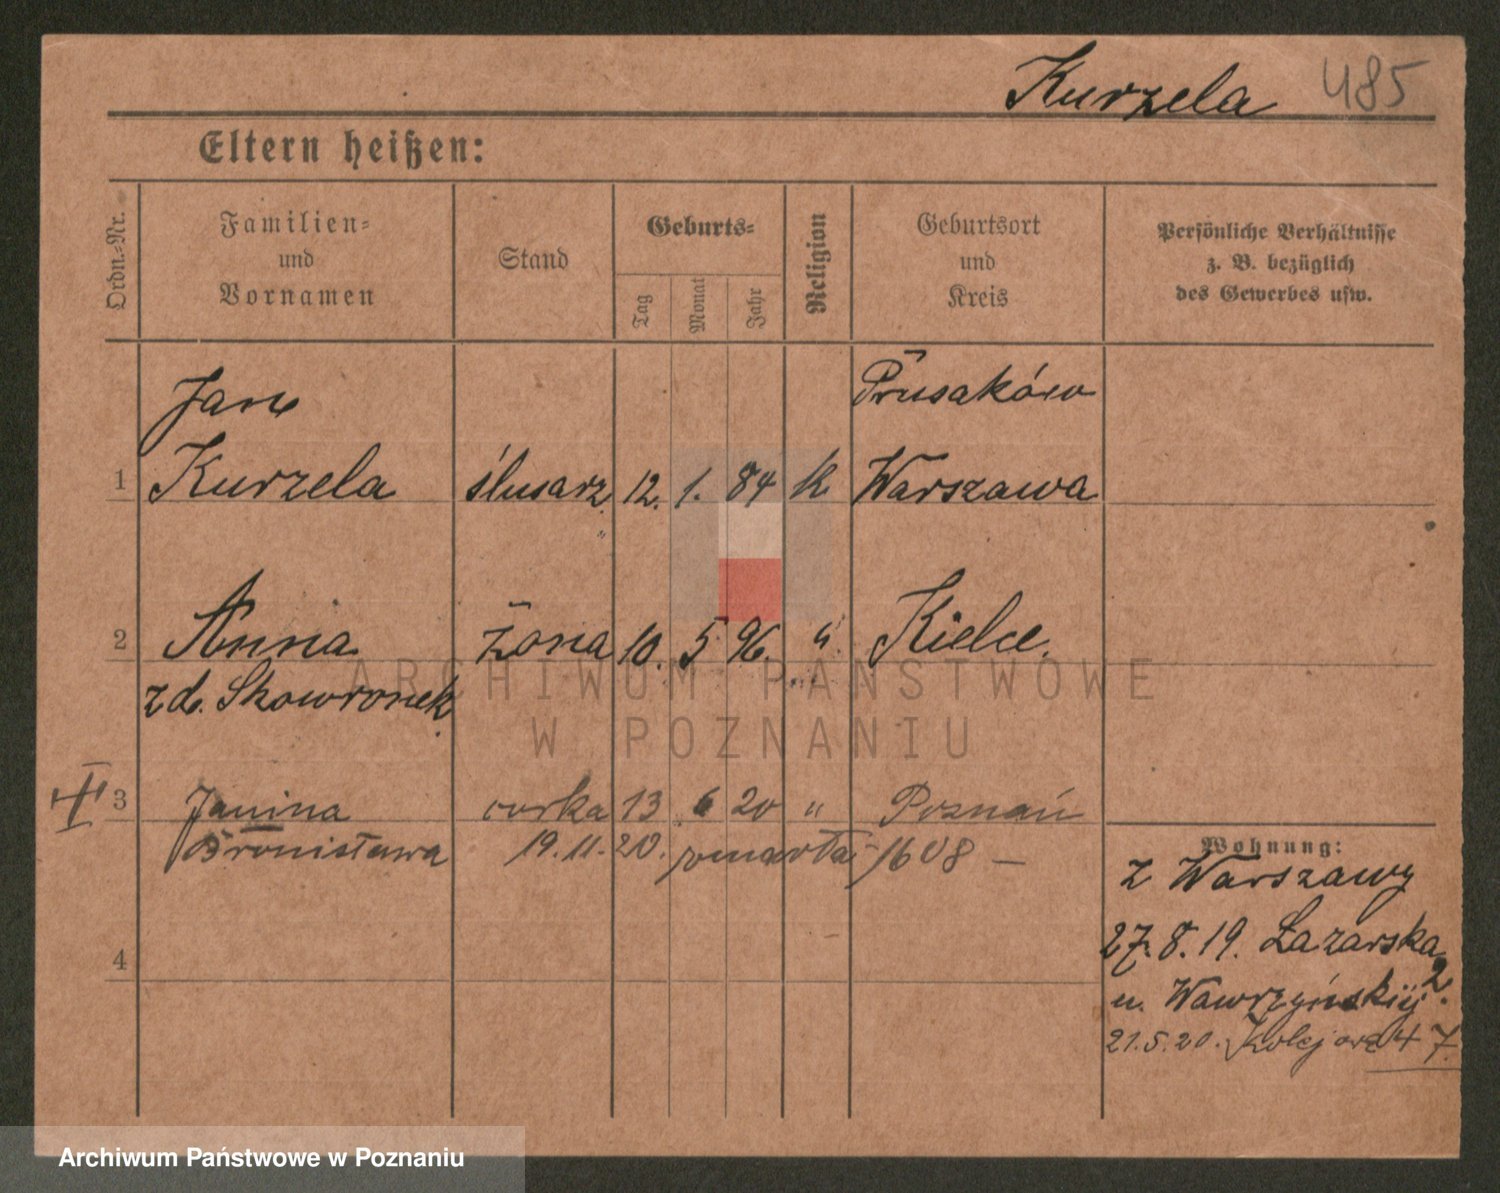 Kurzela 485
Eltern heißen:
Ordn.-Nr.
Familien- und Vornamen
Stand
Geburts-
Tag
Monat
Jahr
Religion
Geburtsort und Kreis
Persönliche Verhältnisse
z. B. bezüglich
des Gewerbes usw.
Jan Prusaków
1 Kurzela ślusarz 12. 1. 84 k Warszawa
2 Anna żona 10. 5 96. " Kielce.
zd. Skowronek
ARCHIWUM PAŃSTWOWE
W POZNANIU
3 Janina corka 13 6 20 " Poznań
Bronisława 19.11.20. zmarła 1608 —
Wohnung:
z Warszawy
4
27.8.19. Łazarska 2.
u. Wawrzyńskiej
21.5.20. Kolejowa 47.
Archiwum Państwowe w Poznaniu